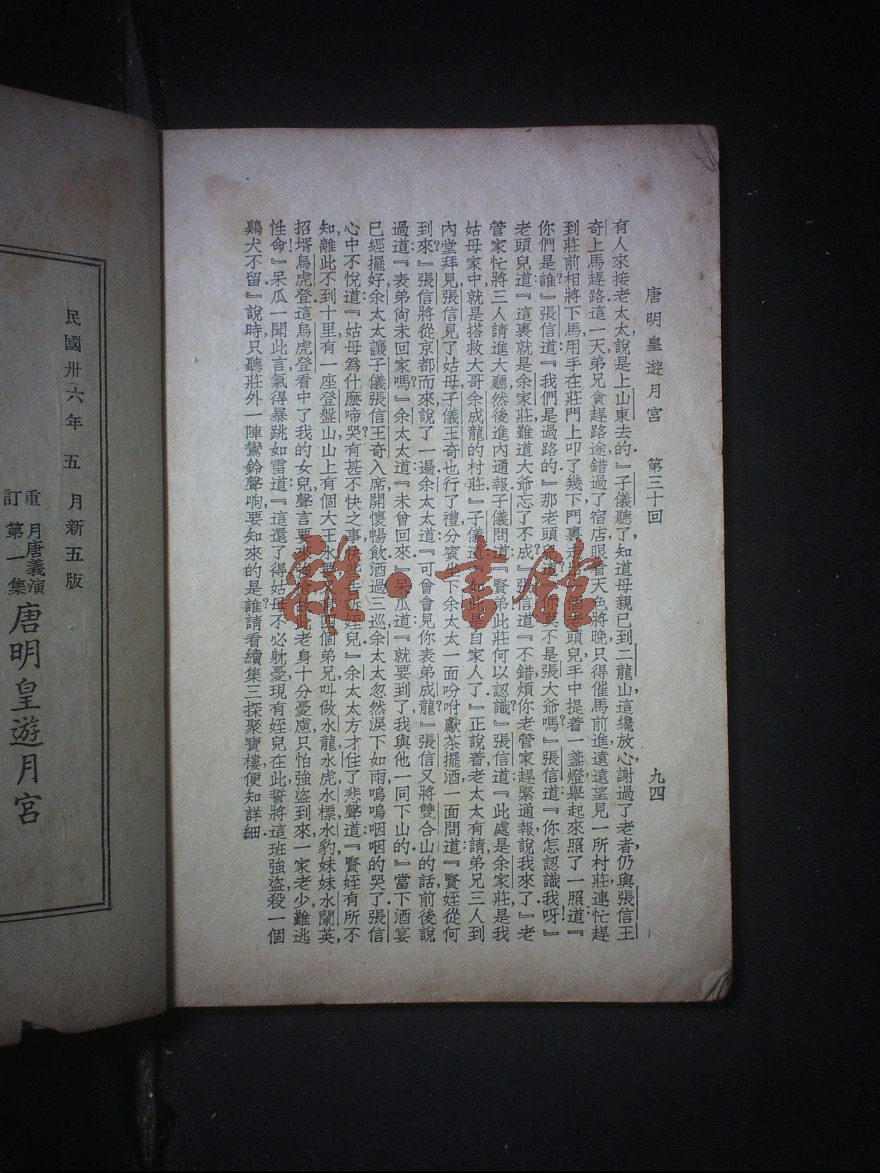 唐明皇遊月宮　第三十回　九四
有人來接老太太說是上山東去的』子儀聽了知道母親已到二龍山這纔放心謝過了老者仍與張信王
奇上馬趕路這一天弟兄貪趕路途錯過了宿店眼看天色將晚只得催馬前進遠遠望見一所村莊連忙趕
到莊前相將下馬用手在莊門上叩了幾下門裏走 個老頭兒手中提着一盞燈舉起來照了一照道『
你們是誰』張信道『我們是過路的』那老頭兒道『你莫不是張大爺嗎』張信道『你怎認識我呀』
老頭兒道『這裏就是余家莊難道大爺忘了不成』張信道『不錯煩你老管家趕緊通報說我來了』老
管家忙將三人請進大廳然後進內通報子儀問道『賢弟此莊何以認識』張信道『此處是余家莊是我
姑母家中就是搭救大哥余成龍的村莊』子儀道『 自家人了』正說着老太太有請弟兄三人到
內堂拜見張信見了姑母子儀王奇也行了禮分賓坐下余太太一面吩咐獻茶擺酒一面問道『賢姪從何
到來』張信將從京都而來說了一遍余太太道『可曾會見你表弟成龍』張信又將雙合山的話前後說
過道『表弟尙未回家嗎』余太太道『未曾回來』呆瓜道『就要到了我與他一同下山的』當下酒宴
已經擺好余太太讓子儀張信王奇入席開懷暢飲酒過三巡余太太忽然淚下如雨嗚嗚咽咽的哭了張信
心中不悅道『姑母爲什麽啼哭有甚不快之事 姪兒』余太太方才住了悲聲道『賢姪有所不
知離此不到十里有一座登盤山山上有個大王水 四個弟兄叫做水龍水虎水標水豹妹妹水蘭英
招壻烏虎登這烏虎登看中了我的女兒聲言要 此老身十分憂慮只怕強盜到來一家老少難逃
性命』呆瓜一聞此言氣得暴跳如雷道『這還了得姑母不必躭憂現有姪兒在此誓將這班強盜殺一個
鷄犬不留』說時只聽莊外一陣鸞鈴聲响要知來的是誰請看續集三探聚寶樓便知詳細
雅·書館
民國卅六年五月新五版
重訂
月唐義演
第一集
唐明皇遊月宮